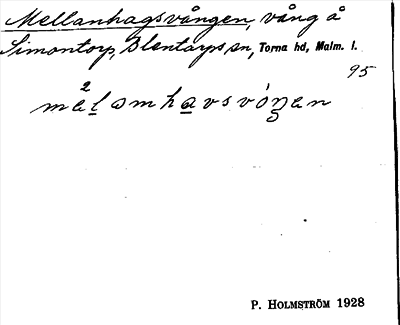 Mellanhagsvången, vång å
Simontorp, Blentarps sn, Torna hd, Malm. l.
95
P. HOLMSTRÖM 1928